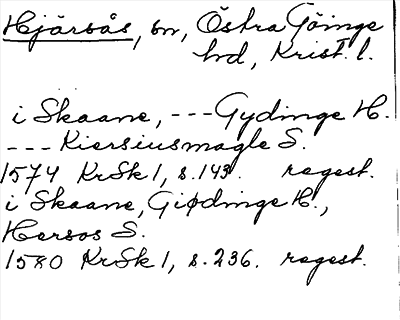 Hjärsås, sn, Östra Göinge
hd, Krist. l.
i Skaane, --- Gydinge H.
--- Kiersiusmagle S.
1574 KrSk 1, s. 143. regest.
i Skaane, Giødinge H.,
Hersos S.
1580 KrSk 1, s. 236. regest.